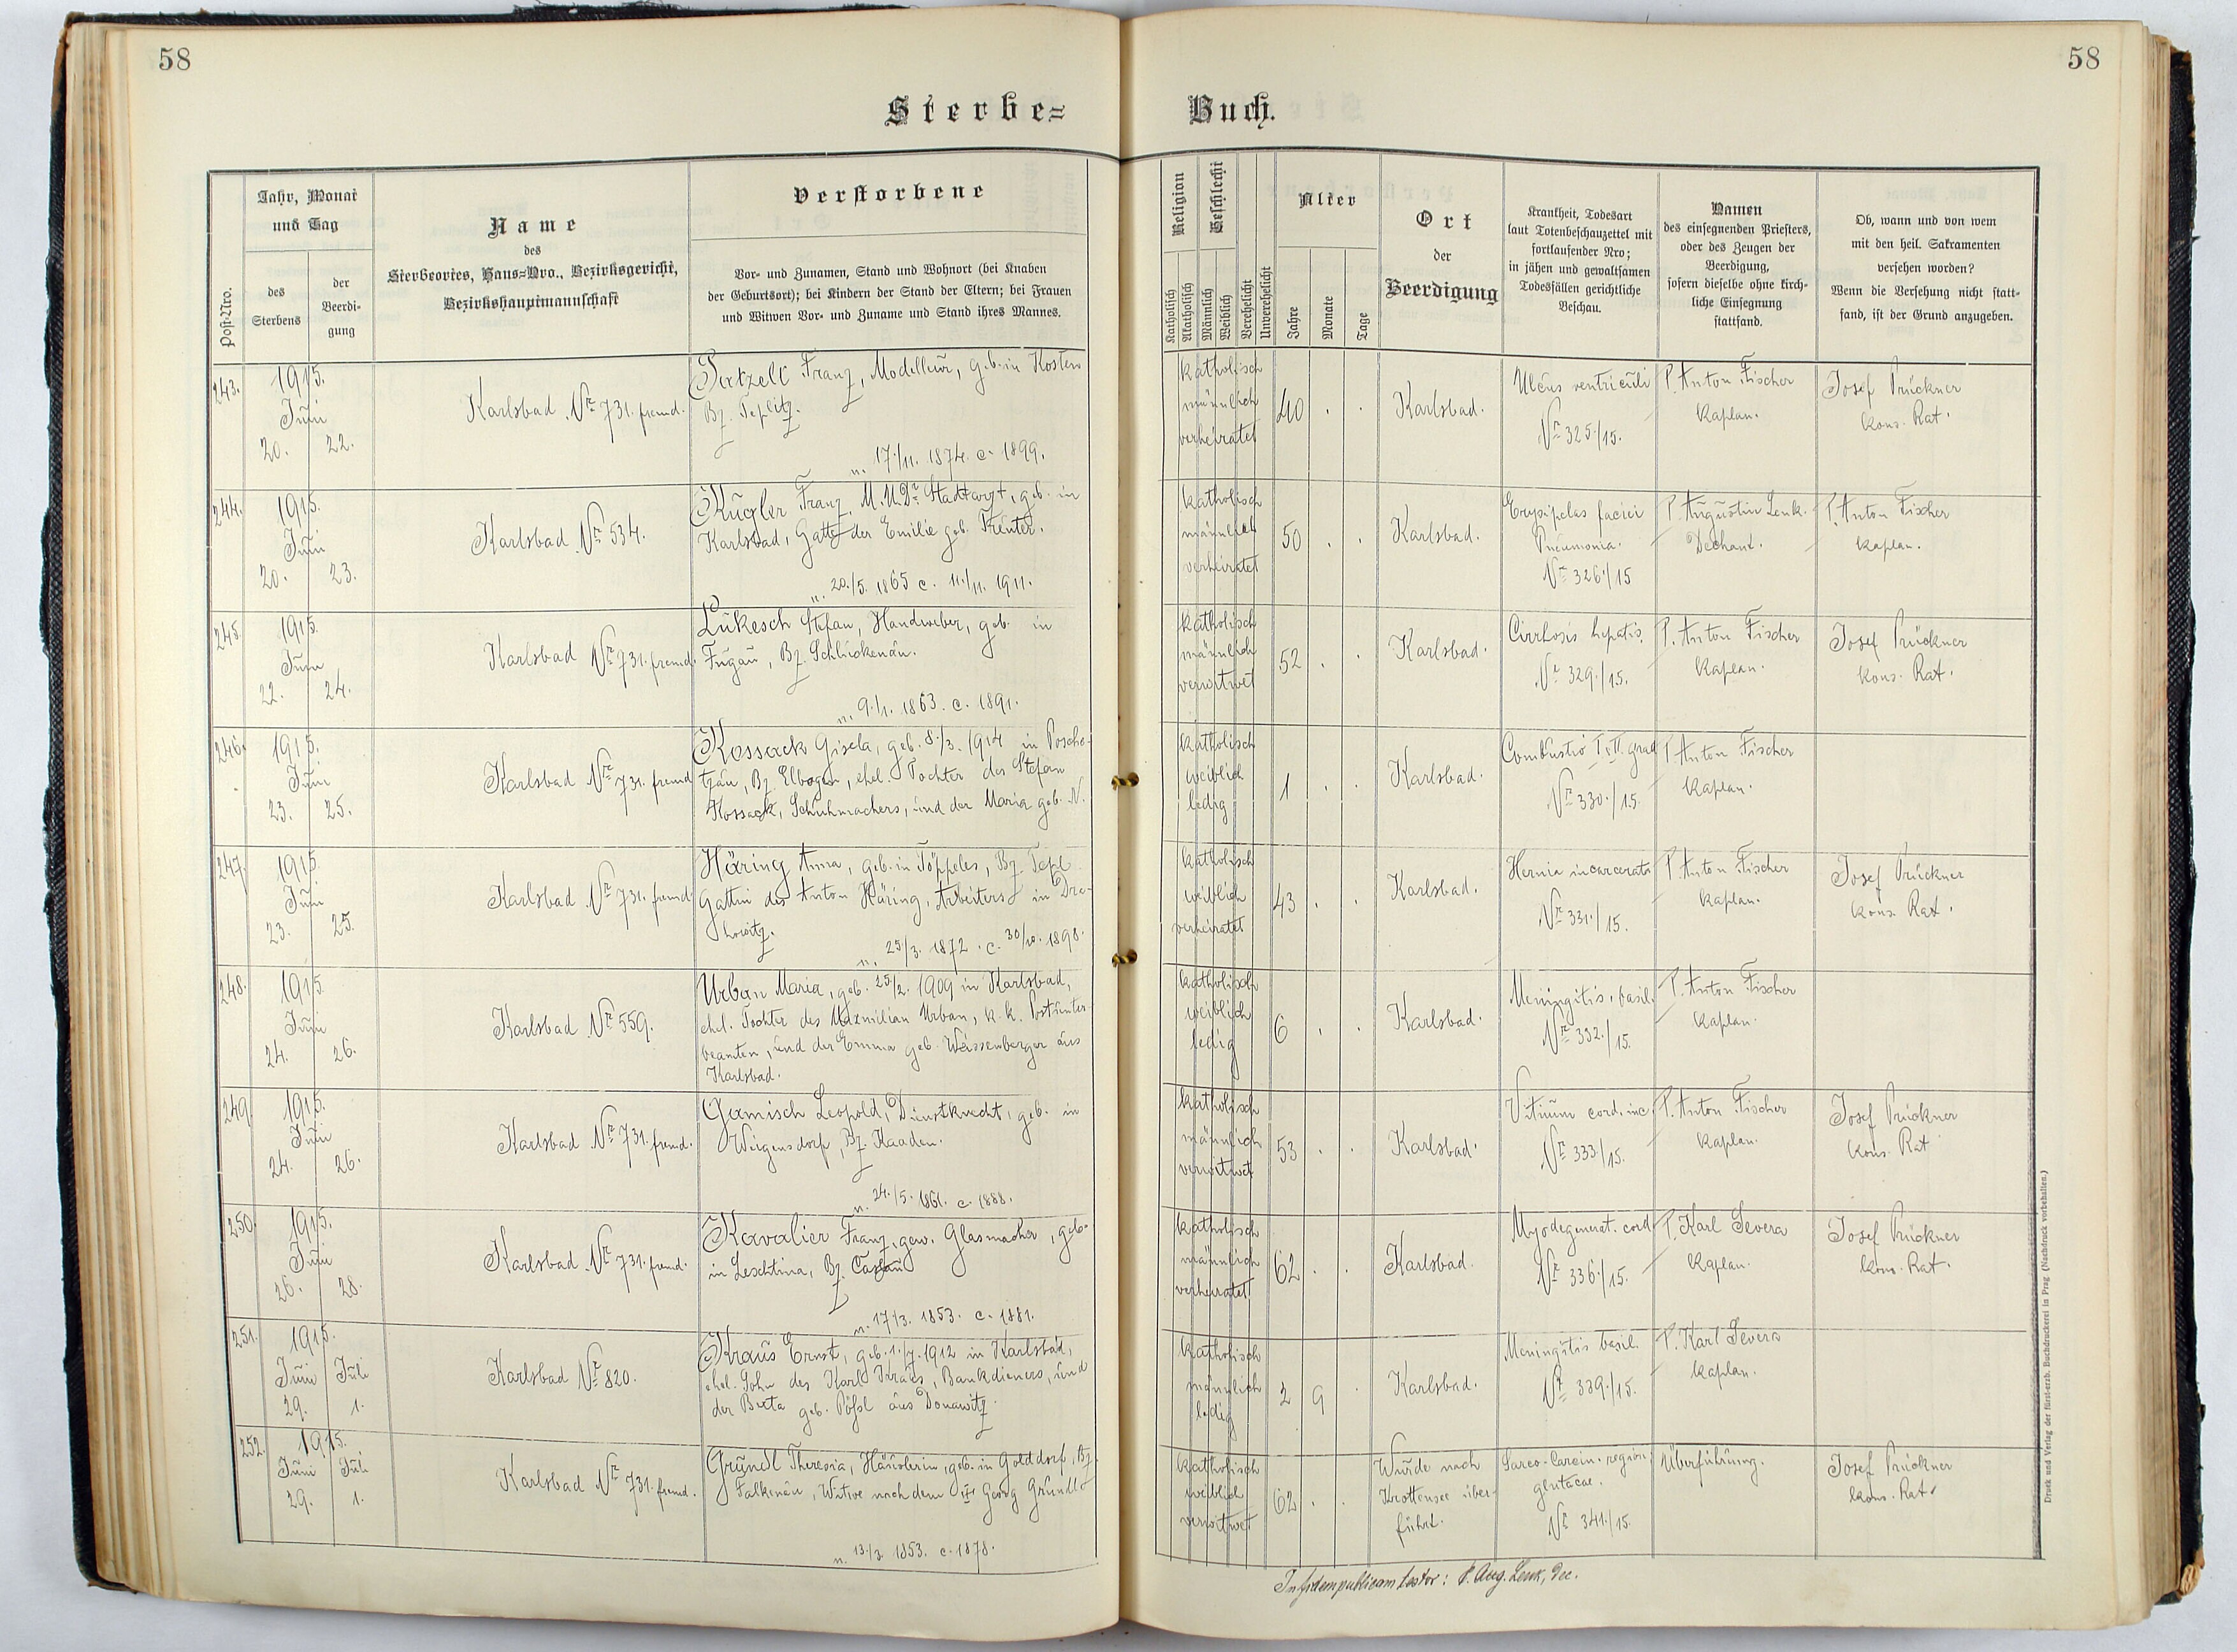 58
58
Sterbe-
Buch.
Post-Nro.
Jahr, Monat
und Tag
des
Sterbens
der
Beerdi-
gung
Name
des
Sterbeortes, Haus-Nro., Bezirksgericht,
Bezirkshauptmannschaft
Verstorbene
Vor- und Zunamen, Stand und Wohnort (bei Knaben
der Geburtsort); bei Kindern der Stand der Eltern; bei Frauen
und Witwen Vor- und Zuname und Stand ihres Mannes.
Religion
Katholisch
Akatholisch
Geschlecht
Männlich
Weiblich
Verehelicht
Unverehelicht
Alter
Jahre
Monate
Tage
Ort
der
Beerdigung
Krankheit, Todesart
laut Totenbeschauzettel mit
fortlaufender Nro;
in jähen und gewaltsamen
Todesfällen gerichtliche
Beschau.
Namen
des einsegnenden Priesters,
oder des Zeugen der
Beerdigung,
sofern dieselbe ohne kirch-
liche Einsegnung
stattfand.
Ob, wann und von wem
mit den heil. Sakramenten
versehen worden?
Wenn die Versehung nicht statt-
fand, ist der Grund anzugeben.
243.
1915.
Juni
20. 22.
Karlsbad Nr 731. fremd.
Franz, Modelleur, geb. in Kosten
Bz. Teplitz.
n. 17./11. 1874. c. 1899.
katholisch
männlich
verheiratet
40
Karlsbad.
Ulcus ventriculi
Nr 325./15.
P. Anton Fischer
Kaplan.
Josef Prückner
kons. Rat.
244.
1915.
Juni
20. 23.
Karlsbad Nr 534.
Kugler Franz, M.U.Dr Stadtarzt, geb. in
Karlsbad, Gatte der Emilie geb.
n. 20./5. 1865 c. 11./11. 1911.
katholisch
männlich
verheiratet
50
Karlsbad.
Erysipelas faciei
Pneumonia.
Nr 326./15
P. Augustin Lenk.
Dechant.
P. Anton Fischer
Kaplan.
245.
1915.
Juni
22. 24.
Karlsbad Nr 731. fremd.
Lukesch Stefan, Handweber, geb. in
Fugau, Bz. Schluckenau.
n. 9./1. 1863. c. 1891.
katholisch
männlich
verwitwet
52
Karlsbad.
Cirrhosis hepatis.
Nr 329./15.
P. Anton Fischer
Kaplan.
Josef Prückner
kons. Rat.
246.
1915.
Juni
23. 25.
Karlsbad Nr 731. fremd
Kossack Gisela, geb. 8./3. 1914 in Posche-
tzau, Bz. Elbogen, ehel. Tochter des Stefan
Kossack, Schuhmachers, und der Maria geb. N.
katholisch
weiblich
ledig
1
Karlsbad.
Combustio I. II. grad
Nr 330./15.
P. Anton Fischer
Kaplan.
247.
1915.
Juni
23. 25.
Karlsbad Nr 731. fremd.
Häring Anna, geb. in Töppeles, Bz. Tepl
Gattin des Anton Häring, Arbeiters in Dra-
howitz.
n. 25./3. 1872. c. 30/10. 1898.
katholisch
weiblich
verheiratet
43
Karlsbad.
Hernia incarcerata
Nr 331./15.
P. Anton Fischer
Kaplan.
Josef Prückner
kons. Rat.
248.
1915
Juni
24. 26.
Karlsbad Nr 559.
Urban Maria, geb. 25/2. 1909 in Karlsbad,
ehel. Tochter des Maxmilian Urban, k.k. Postunter-
beamten, und der Emma geb. Wassenberger aus
Karlsbad.
katholisch
weiblich
ledig
6
Karlsbad.
Meningitis basil.
Nr 332./15.
P. Anton Fischer
Kaplan.
249.
1915.
Juni
24. 26.
Karlsbad Nr 731. fremd.
Gamisch Leopold, Dienstknecht, geb. in
Bz. Kaaden.
n. 24./5. 1861. c. 1888.
katholisch
männlich
verwitwet
53
Karlsbad.
Vitium cord. inc.
Nr 333/15.
P. Anton Fischer
Kaplan.
Josef Prückner
kons. Rat
250.
1915.
Juni
26. 28.
Karlsbad Nr 731. fremd.
Kavalier Franz, gew. Glasmacher, geb.
in Leschtina, Bz. Caslau
n. 17/3. 1853. c. 1881.
katholisch
männlich
verheiratet
62
Karlsbad.
Myodegenerat. cord
Nr 336./15.
P. Karl Severa
Kaplan.
Josef Prückner
kons. Rat.
251.
1915.
Juni Juli
29. 1.
Karlsbad Nr 820.
Kraus Ernst, geb. 1./9. 1912 in Karlsbad,
ehel. Sohn des Karl Kraus, Bankdieners, und
der Berta geb. Pößl aus Donawitz.
katholisch
männlich
ledig
2 9
Karlsbad.
Meningitis basil.
Nr 339./15.
P. Karl Severa
Kaplan.
252.
1915.
Juni Juli
29. 1.
Karlsbad Nr 731. fremd.
Gründl Theresia, Häuslerin, geb. in Golddorf, Bz.
Falkenau, Witwe nach dem † Georg Gründl
n. 13./3. 1853. c. 1878.
katholisch
weiblich
verwitwet
62
Wurde nach
Krottensee über-
führt.
Sarco-Carcin. region.
glutaeae.
Nr 341./15.
Überführung.
Josef Prückner
kons. Rat.
In fidem publicam testor: P. Aug. Lenk, Dec.
Druck und Verlag der fürst-erzb. Buchdruckerei in Prag. (Nachdruck vorbehalten.)